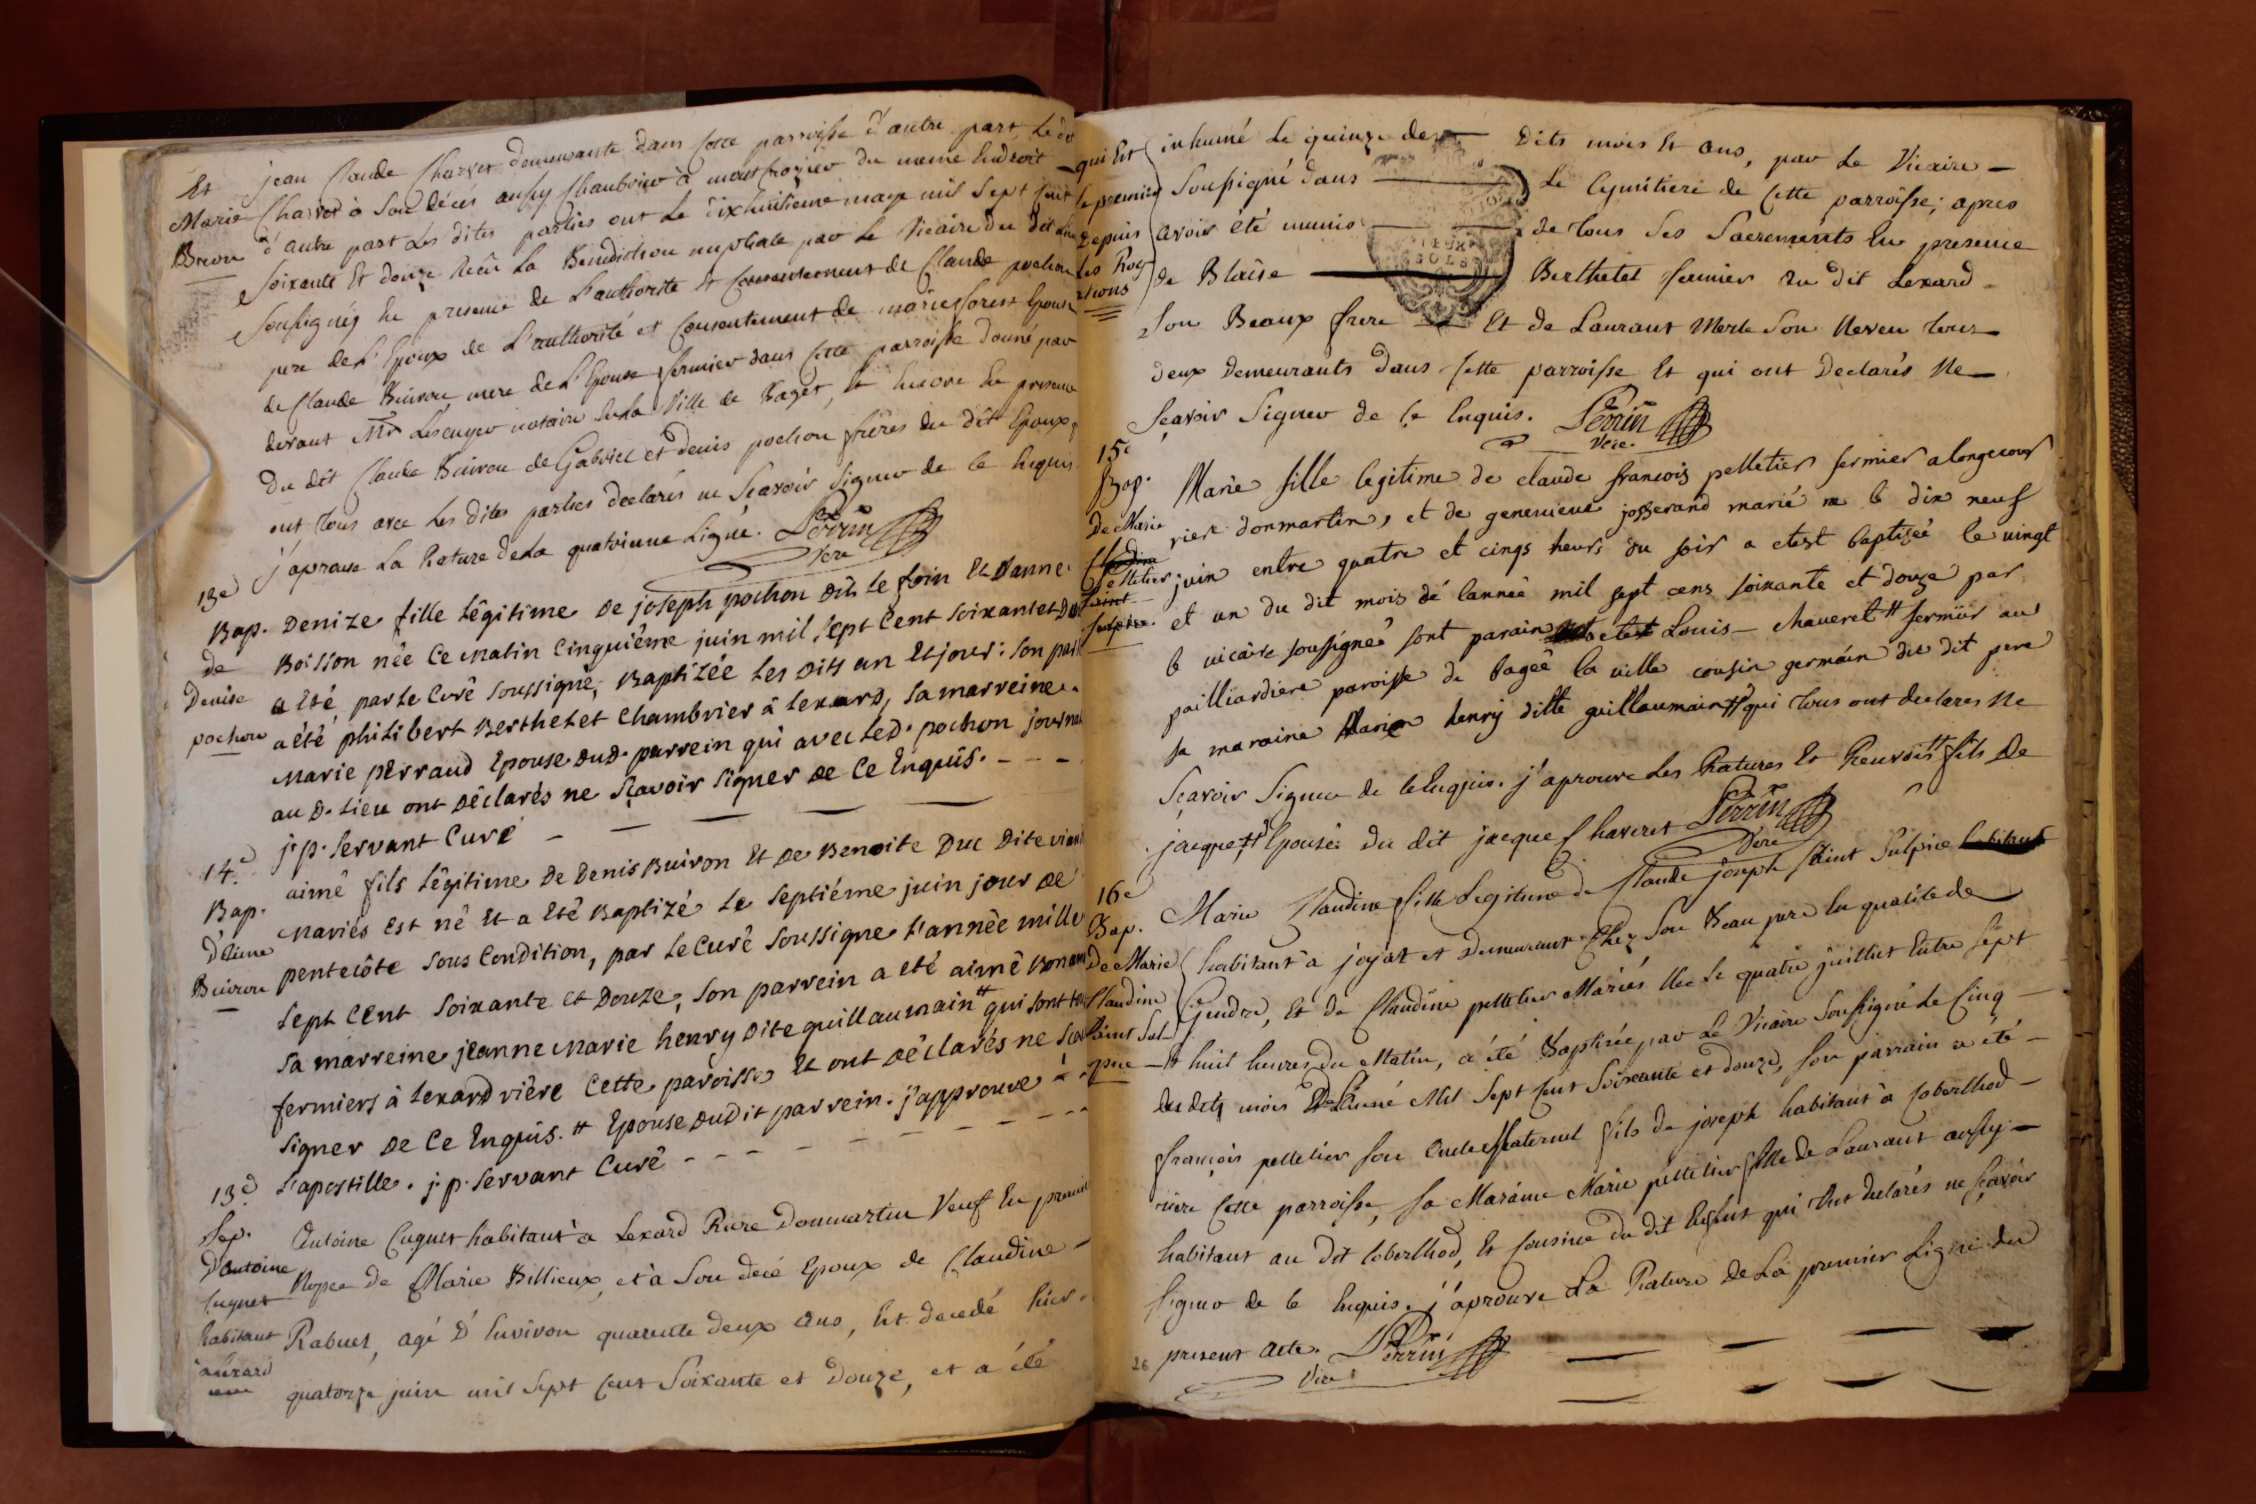 Et jean Claude Charvet demeurante dans cette parroisse d'autre part, Le dit
Marie Charvet à Son décés aussy Chambrier à montfrozier du meme Endroit
Breou d'autre part Les dites parties ont Le dixhuitieme may mil Sept Cent
Soixante Et douze Recû La Benediction nuptiale par Le Vicaire du dit Lieu
Soussignés En presence de L'authorité Et Consentement de Claude pochon
pere de L'Epoux de L'authorité et Consentement de marie forest Epouse
de Claude Buiron mere de L'Epouse fermier dans Cette parroisse donné par
devant Mr Lescuyer notaire de la Ville de Bagé, Et Encore En presence
Du dit Claude Buiron de Gabriel et Denis pochon freres du dit Epoux,
ont tous avec Les dites parties declarés ne Scavoir Signer de ce Enquis
j'aprouve La Rature de La quatrieme Ligne. Perrin
Vere
13e
Bap. Denize fille Légitime De joseph pochon Dit Le foin Et Danne
de Boisson née Ce matin Cinquiéme juin mil Sept Cent Soixante et Dou
Denise a Eté par Le Curé Soussigné, Baptizée Les Dits an Et jour: Son par
pochon a été philibert Berthelet Chambrier à Lexard, Sa marreine
Marie perraud Epouse Dud. parrein qui avec Led. pochon journa
au D. Lieu ont Déclarés ne Scavoir Signer De Ce Enquis.
j. p. Servant Curé
14e
Bap. aimé fils Légitime De Denis Buiron Et De Benoite Duc Dite
D'Eime mariés Est né Et a Eté Baptizé Le Septiéme juin jour De
Buiron pentecôte Sous Condition, par Le Curé Soussigné L'année mille
Sept Cent Soixante Et Douze, Son parrein a Eté aimé
Sa marreine jeanne Marie henry Dite guillaumain # qui Sont
fermiers à Lexard rière Cette paroisse Et ont Déclarés ne Sca
Signer De Ce Enquis. # Epouse Dudit parrein. j'approuve
L'apostille. j. p. Servant Curé
13e
Sep.
D'antoine Antoine Cuguet habitant à Lexard Riere Dommartin Veuf En premi
Cuguet Nopce de Marie Billieux, et à Son decé Epoux de Claudine
habitant Rabuet, agé D'Environ quarante deux ans, Est decedé hier
à Lexard quatorze juin mil Sept Cent Soixante et Douze, et a été
qui Est inhumé Le quinze des Dits mois Et ans, par Le Vicaire
le premier Soussigné dans Le Cymitiere de Cette parroisse; apres
Depuis avoir été munis de tous Ses Sacrements En presence
Les Rog de Blaise Berthelet fermier du dit Lexard
ations Son Beaux frere Et de Laurant Merle Son Neveu tous
deux demeurants dans Cette parroisse Et qui ont Declarés Ne
Scavoir Signer de Ce Enquis. Perrin
Vere.
15e
Bap. Marie fille legitime de claude francois pelletier fermier a longecour
De Marie rier donmartin, et de genevieve josserand marié ne le dix neuf
pelletier juin entre quatre et cinqs heurs du soir a etest baptizeé le vingt
et un du dit mois dé lanneé mil sept cens soixante et douze par
le vicaire soussigneé sont parain etest Louis Chaveret # fermiir au
pailliardiere paroisse de bageé la ville cousin germain du dit pere
sa maraine Marie henry ditte guillaumain # qui tous ont declares Ne
Scavoir Signer de ce Enquis. j'aprouve Les Ratures Et Renvois # fils De
jacque # Epouse du dit jacque Chaveret Perrin
Vere
16e
Bap. Marie Claudine fille Legitime de Claude joseph Saint Sulpice habitant
De Marie habitant à joyat et Demeurant Chez Son Beau pere En qualité de
Claudine Gendre, Et de Claudine pelletier Mariés Née Le quatre juillet Entre Sept
Saint Sul Et huit heures du Matin, a été Baptizée par Le Vicaire Soussigné Le Cinq
pice des dits mois Et L'anné Mil Sept Cent Soixante et douze, Son parrain a été
françois pelletier Son Oncle Maternel fils de joseph habitant à Loberthod
riere Cette parroisse, Sa Maraine Marie pelletier fille de Laurant aussy
habitant au Dit Loberthod, Et Cousine du dit Enfant qui Ont declarés ne Scavoir
Signer de Ce Enquis. j'aprouve La Rature De La premier Ligne du
26 present acte. Perrin
Vere